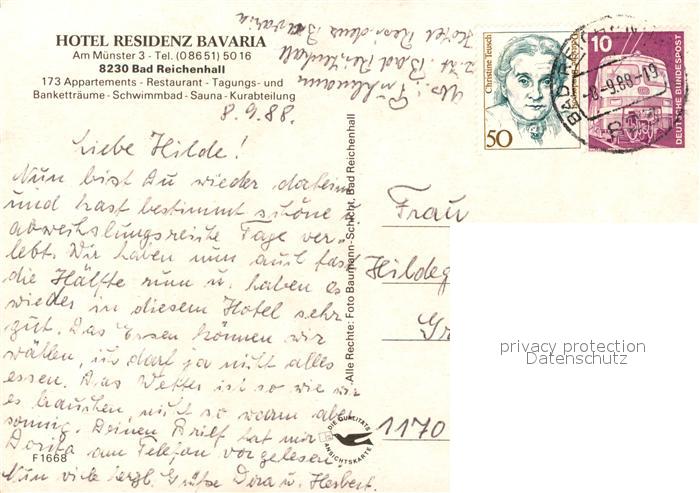 HOTEL RESIDENZ BAVARIA
Am Münster 3 - Tel. (08651) 5016
8230 Bad Reichenhall
173 Appartements - Restaurant - Tagungs- und
Banketträume - Schwimmbad - Sauna - Kurabteilung
Abs.
z.Zt. Bad Reichenhall
Hotel Residenz Bavaria
8.9.88.
Liebe Hilde!
Nun bist Du wieder daheim
und hast bestimmt schöne u.
abwechslungsreiche Tage ver-
lebt. Wir haben nun auch fast
die Hälfte rum u. haben es
wieder in diesem Hotel sehr
gut. Das Essen können wir
wählen, ich darf ja nicht alles
essen. Das Wetter ist so wie wir
es brauchen, nicht so warm aber
sonnig. Deinen Brief hat mir
Dorita am Telefon vorgelesen.
Nun viele herzl. Grüße Dora u. Herbert.
F1668
Alle Rechte: Foto Baumann-Schicht, Bad Reichenhall
DIE QUALITÄTS
ANSICHTSKARTE
Christine Teusch
Deutsche Bundespost
50
10
DEUTSCHE BUNDESPOST
BAD REI
-8.-9.88-19
Frau
Hildeg
Gr
1170
privacy protection
Datenschutz